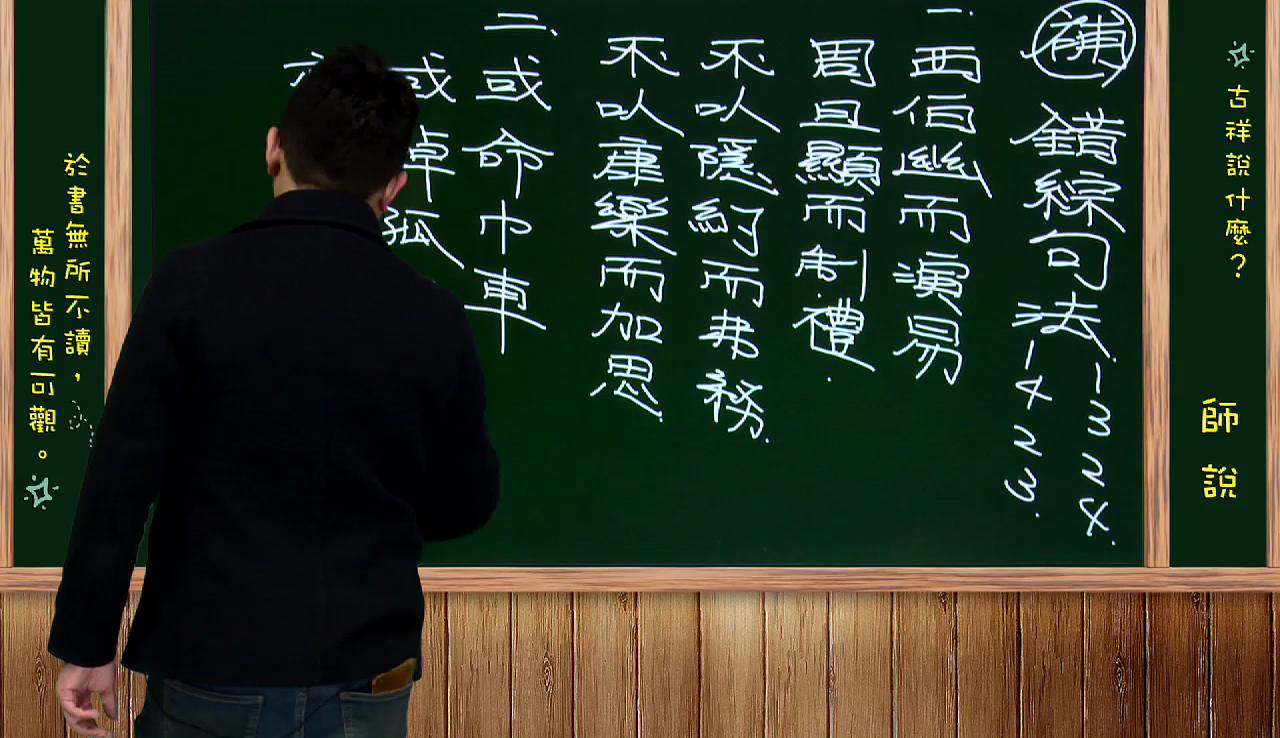 古祥說什麼？
師說
補
錯綜句法
1324.
1423.
一.西伯幽而演易
周旦顯而制禮.
不以隱約而弗務.
不以康樂而加思.
二.或命巾車
或棹孤
亦
於書無所不讀，
萬物皆有可觀。